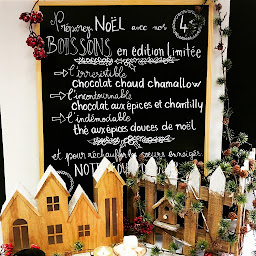 Préparez NOËL avec nos 4
BOISSONS en édition limitée
L'irrésistible
chocolat chaud chamallow
L'incontournable
chocolat aux épices et chantilly
L'indémodable
thé aux épices douces de noël
et pour réchauffer les coeurs